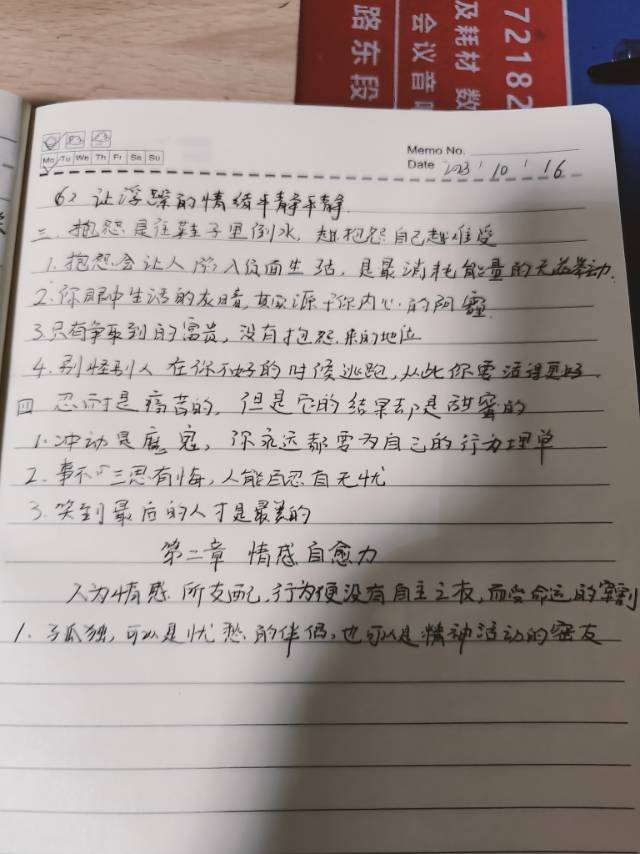 72182
及耗材 数
会议音
路东段
Memo No.
Mo Tu We Th Fr Sa Su
Date 2023 / 10 / 16
6> 让浮躁的情绪平静平静
三. 抱怨是往鞋子里倒水, 越抱怨自己越难受
1. 抱怨会让人陷入负面生活, 是最消耗能量的无益举动.
2. 你眼中生活的灰暗, 其实源于你内心的阴霾
3. 只有争取到的富贵, 没有抱怨来的地位
4. 别怪别人在你不好的时候逃跑, 从此你要活得更好.
四 忍耐是痛苦的, 但是它的结果却是甜蜜的
1. 冲动是魔鬼, 你永远都要为自己的行为埋单
2. 事不三思有悔, 人能百忍自无忧
3. 笑到最后的人才是最美的
第二章 情感自愈力
人为情感所支配, 行为便没有自主之权, 而受命运的宰割
1. 孤独, 可以是忧愁的伴侣, 也可以是精神活动的密友